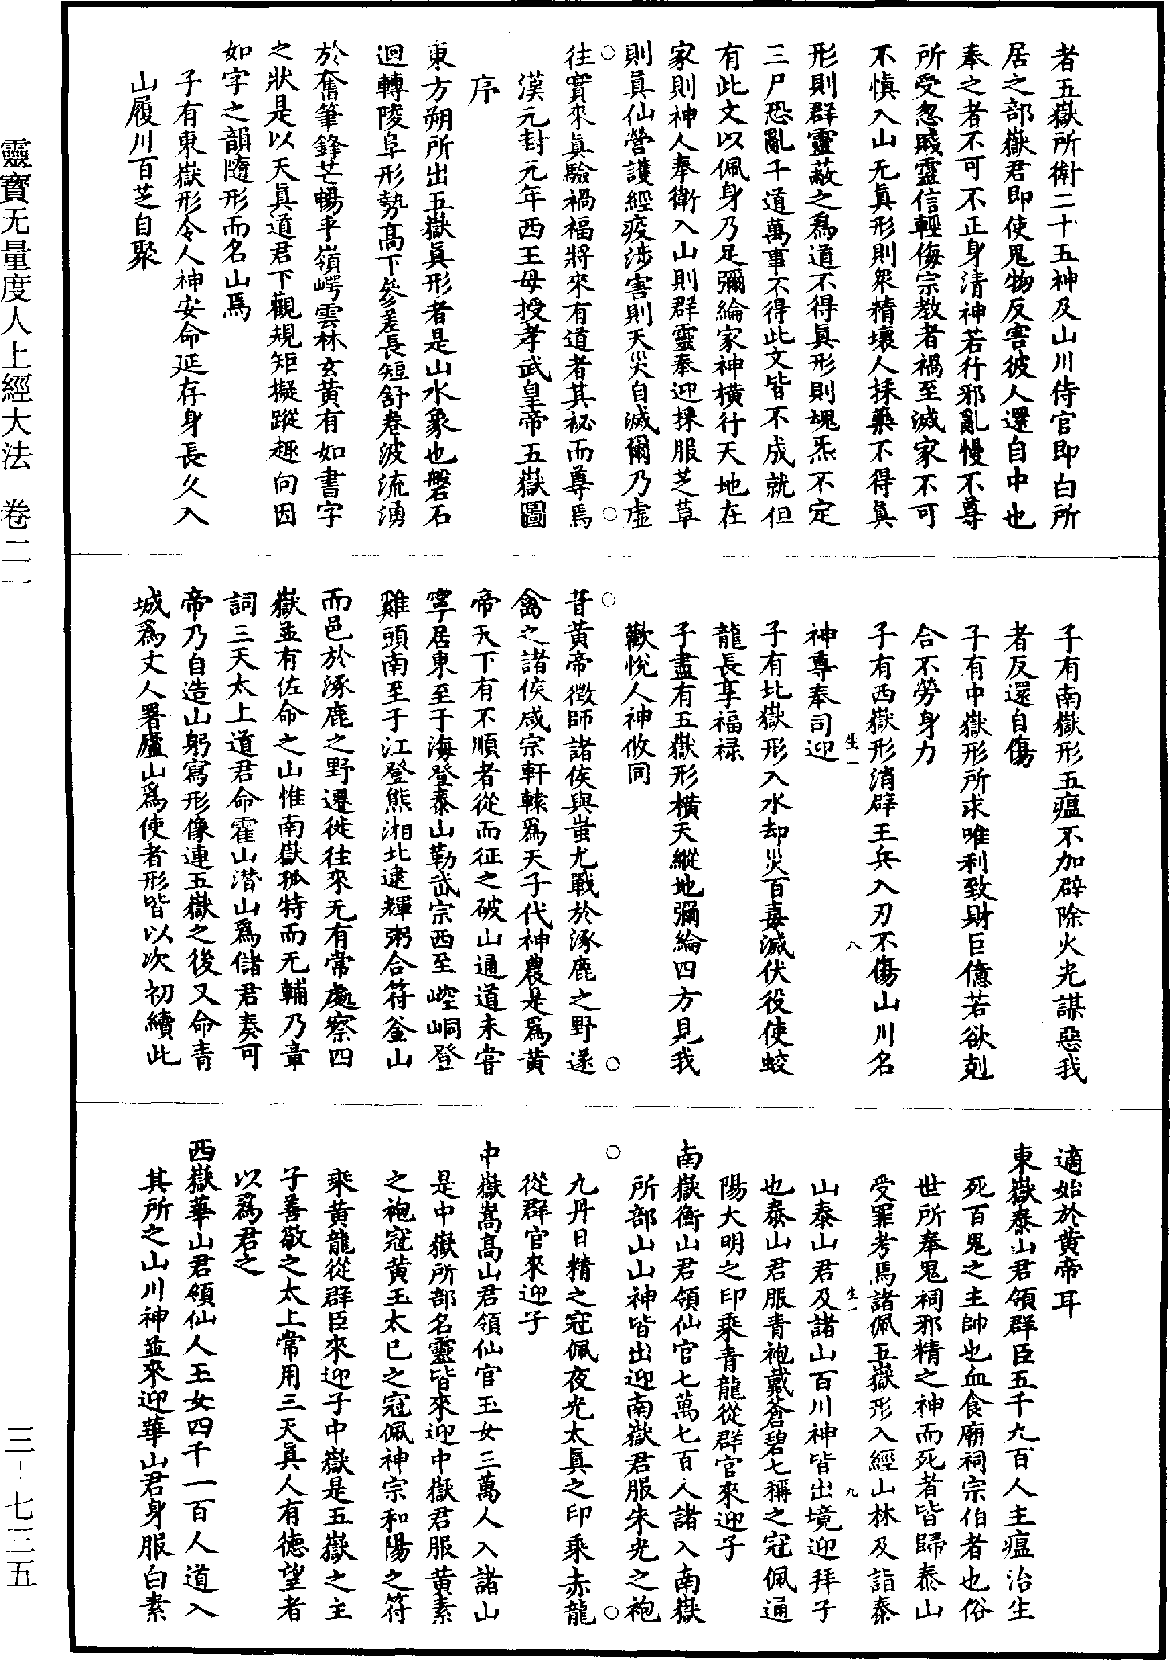 者五嶽所衛二十五神及山川侍官即白所
居之部嶽君即使鬼物反害彼人還自中也
奉之者不可不正身清神若行邪亂慢不尊
所受忽賤靈信輕侮宗教者禍至滅家不可
不慎入山无真形則衆精壞人採藥不得真
形則群靈蔽之為道不得真形則塊炁不定
三尸恐亂千道萬事不得此文皆不成就但
有此文以佩身乃足彌綸家神橫行天地在
家則神人奉衛入山則群靈奉迎採服芝草
則真仙營護經疫涉害則天災自滅爾乃虛
往實來真驗禍福將來有道者其祕而尊焉
漢元封元年西王母授孝武皇帝五嶽圖
序
東方朔所出五嶽真形者是山水象也磐石
迴轉陵阜形勢高下參差長短舒卷波流湧
於奮筆鋒芒暢乎嶺崿雲林玄黃有如書字
之狀是以天真道君下觀規矩擬蹤趣向因
如字之韻隨形而名山焉
子有東嶽形令人神安命延存身長久入
山履川百芝自聚
子有南嶽形五瘟不加辟除火光謀惡我
者反還自傷
子有中嶽形所求唯利致財巨億若欲剋
合不勞身力
子有西嶽形消辟王兵入刃不傷山川名
神尊奉司迎
子有北嶽形入水却災百毒滅伏役使蛟
龍長享福祿
子盡有五嶽形橫天縱地彌綸四方見我
歡悅人神攸同
昔黃帝徵師諸侯與蚩尤戰於涿鹿之野遂
禽之諸侯咸宗軒轅為天子代神農是為黃
帝天下有不順者從而征之破山通道未嘗
寧居東至于海登泰山勒岱宗西至崆峒登
雞頭南至于江登熊湘北逮輝粥合符釜山
而邑於涿鹿之野遷徙往來无有常處察四
嶽並有佐命之山惟南嶽孤特而无輔乃章
詞三天太上道君命霍山潛山為儲君奏可
帝乃自造山躬寫形像連五嶽之後又命青
城為丈人署廬山為使者形皆以次初續此
適始於黃帝耳
東嶽泰山君領群臣五千九百人主瘟治生
死百鬼之主帥也血食廟祠宗伯者也俗
世所奉鬼祠邪精之神而死者皆歸泰山
受罪考焉諸佩五嶽形入經山林及詣泰
山泰山君及諸山百川神皆出境迎拜子
也泰山君服青袍戴蒼碧七稱之冠佩通
陽大明之印乘青龍從群官來迎子
南嶽衡山君領仙官七萬七百人諸入南嶽
所部山山神皆出迎南嶽君服朱光之袍
九丹日精之冠佩夜光太真之印乘赤龍
從群官來迎子
中嶽嵩高山君領仙官玉女三萬人入諸山
是中嶽所部名靈皆來迎中嶽君服黃素
之袍冠黃玉太巳之冠佩神宗和陽之符
乘黃龍從群臣來迎子中嶽是五嶽之主
子善敬之太上常用三天真人有德望者
以為君之
西嶽華山君領仙人玉女四千一百人道入
其所之山川神並來迎華山君身服白素
生一 八
生一 九
靈寶无量度人上經大法 卷二一
三-七三五